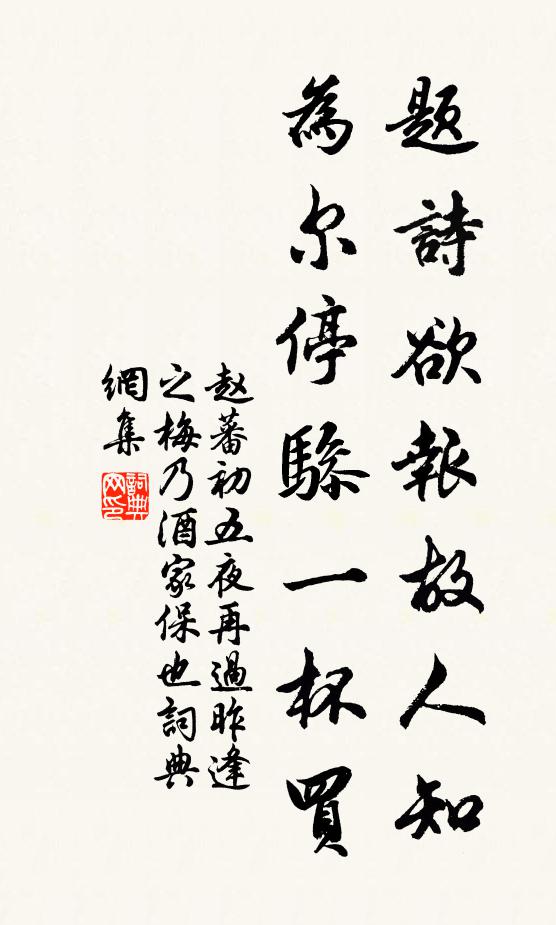 題詩欲報故人知
為尔停驂一杯買
赵蕃初五夜再過昨逢
之梅乃酒家保也詞典
網集
詞典
网印